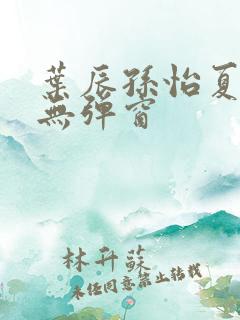 葉辰孫怡夏
無彈窗
林升蔱
未经同意禁止转载